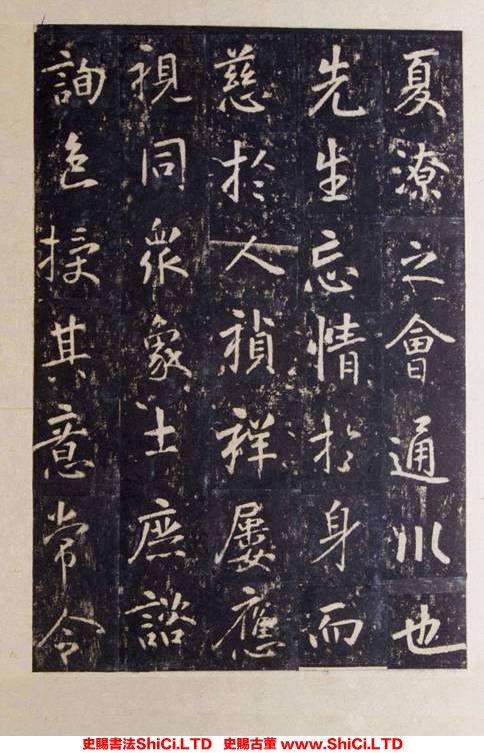 夏潦之會通川也
先生忘情於身而
慈於人禎祥屢應
視同衆象士庶諮
詢色授其意常令
史賜書法ShiCi.LTD 史賜古董 www.ShiCi.LTD